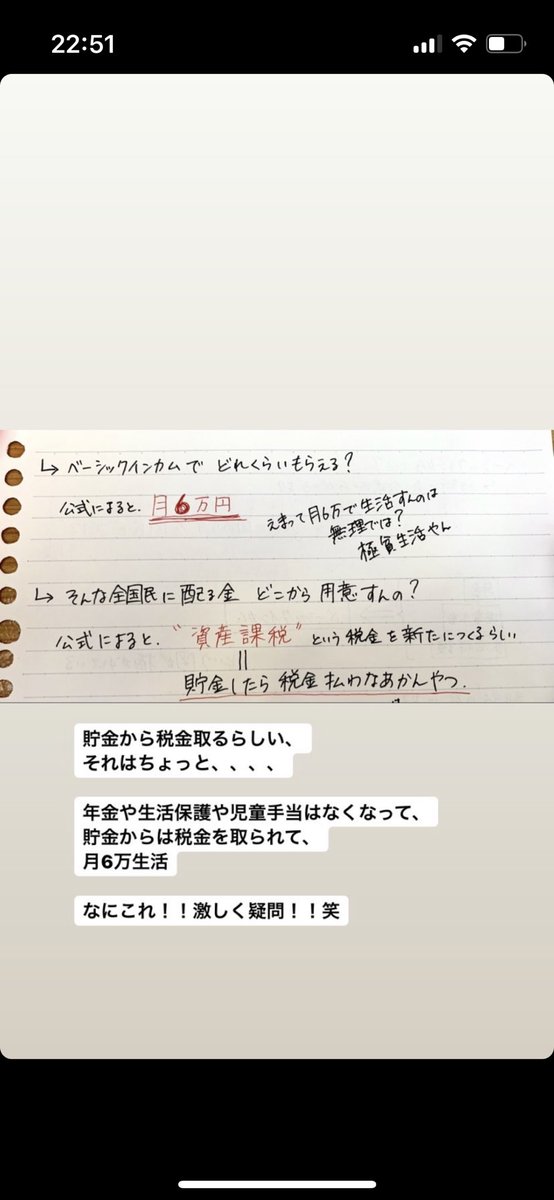 22:51
↳ ベーシックインカムで どれくらいもらえる?
公式によると、月6万円
えまって月6万で生活すんのは
無理では?
極貧生活やん
↳ そんな全国民に配る金 どこから 用意すんの?
公式によると、"資産課税" という税金を新たにつくるらしい
||
貯金したら税金払わなあかんやつ.
貯金から税金取るらしい、
それはちょっと、、、、
年金や生活保護や児童手当はなくなって、
貯金からは税金を取られて、
月6万生活
なにこれ！！激しく疑問！！笑